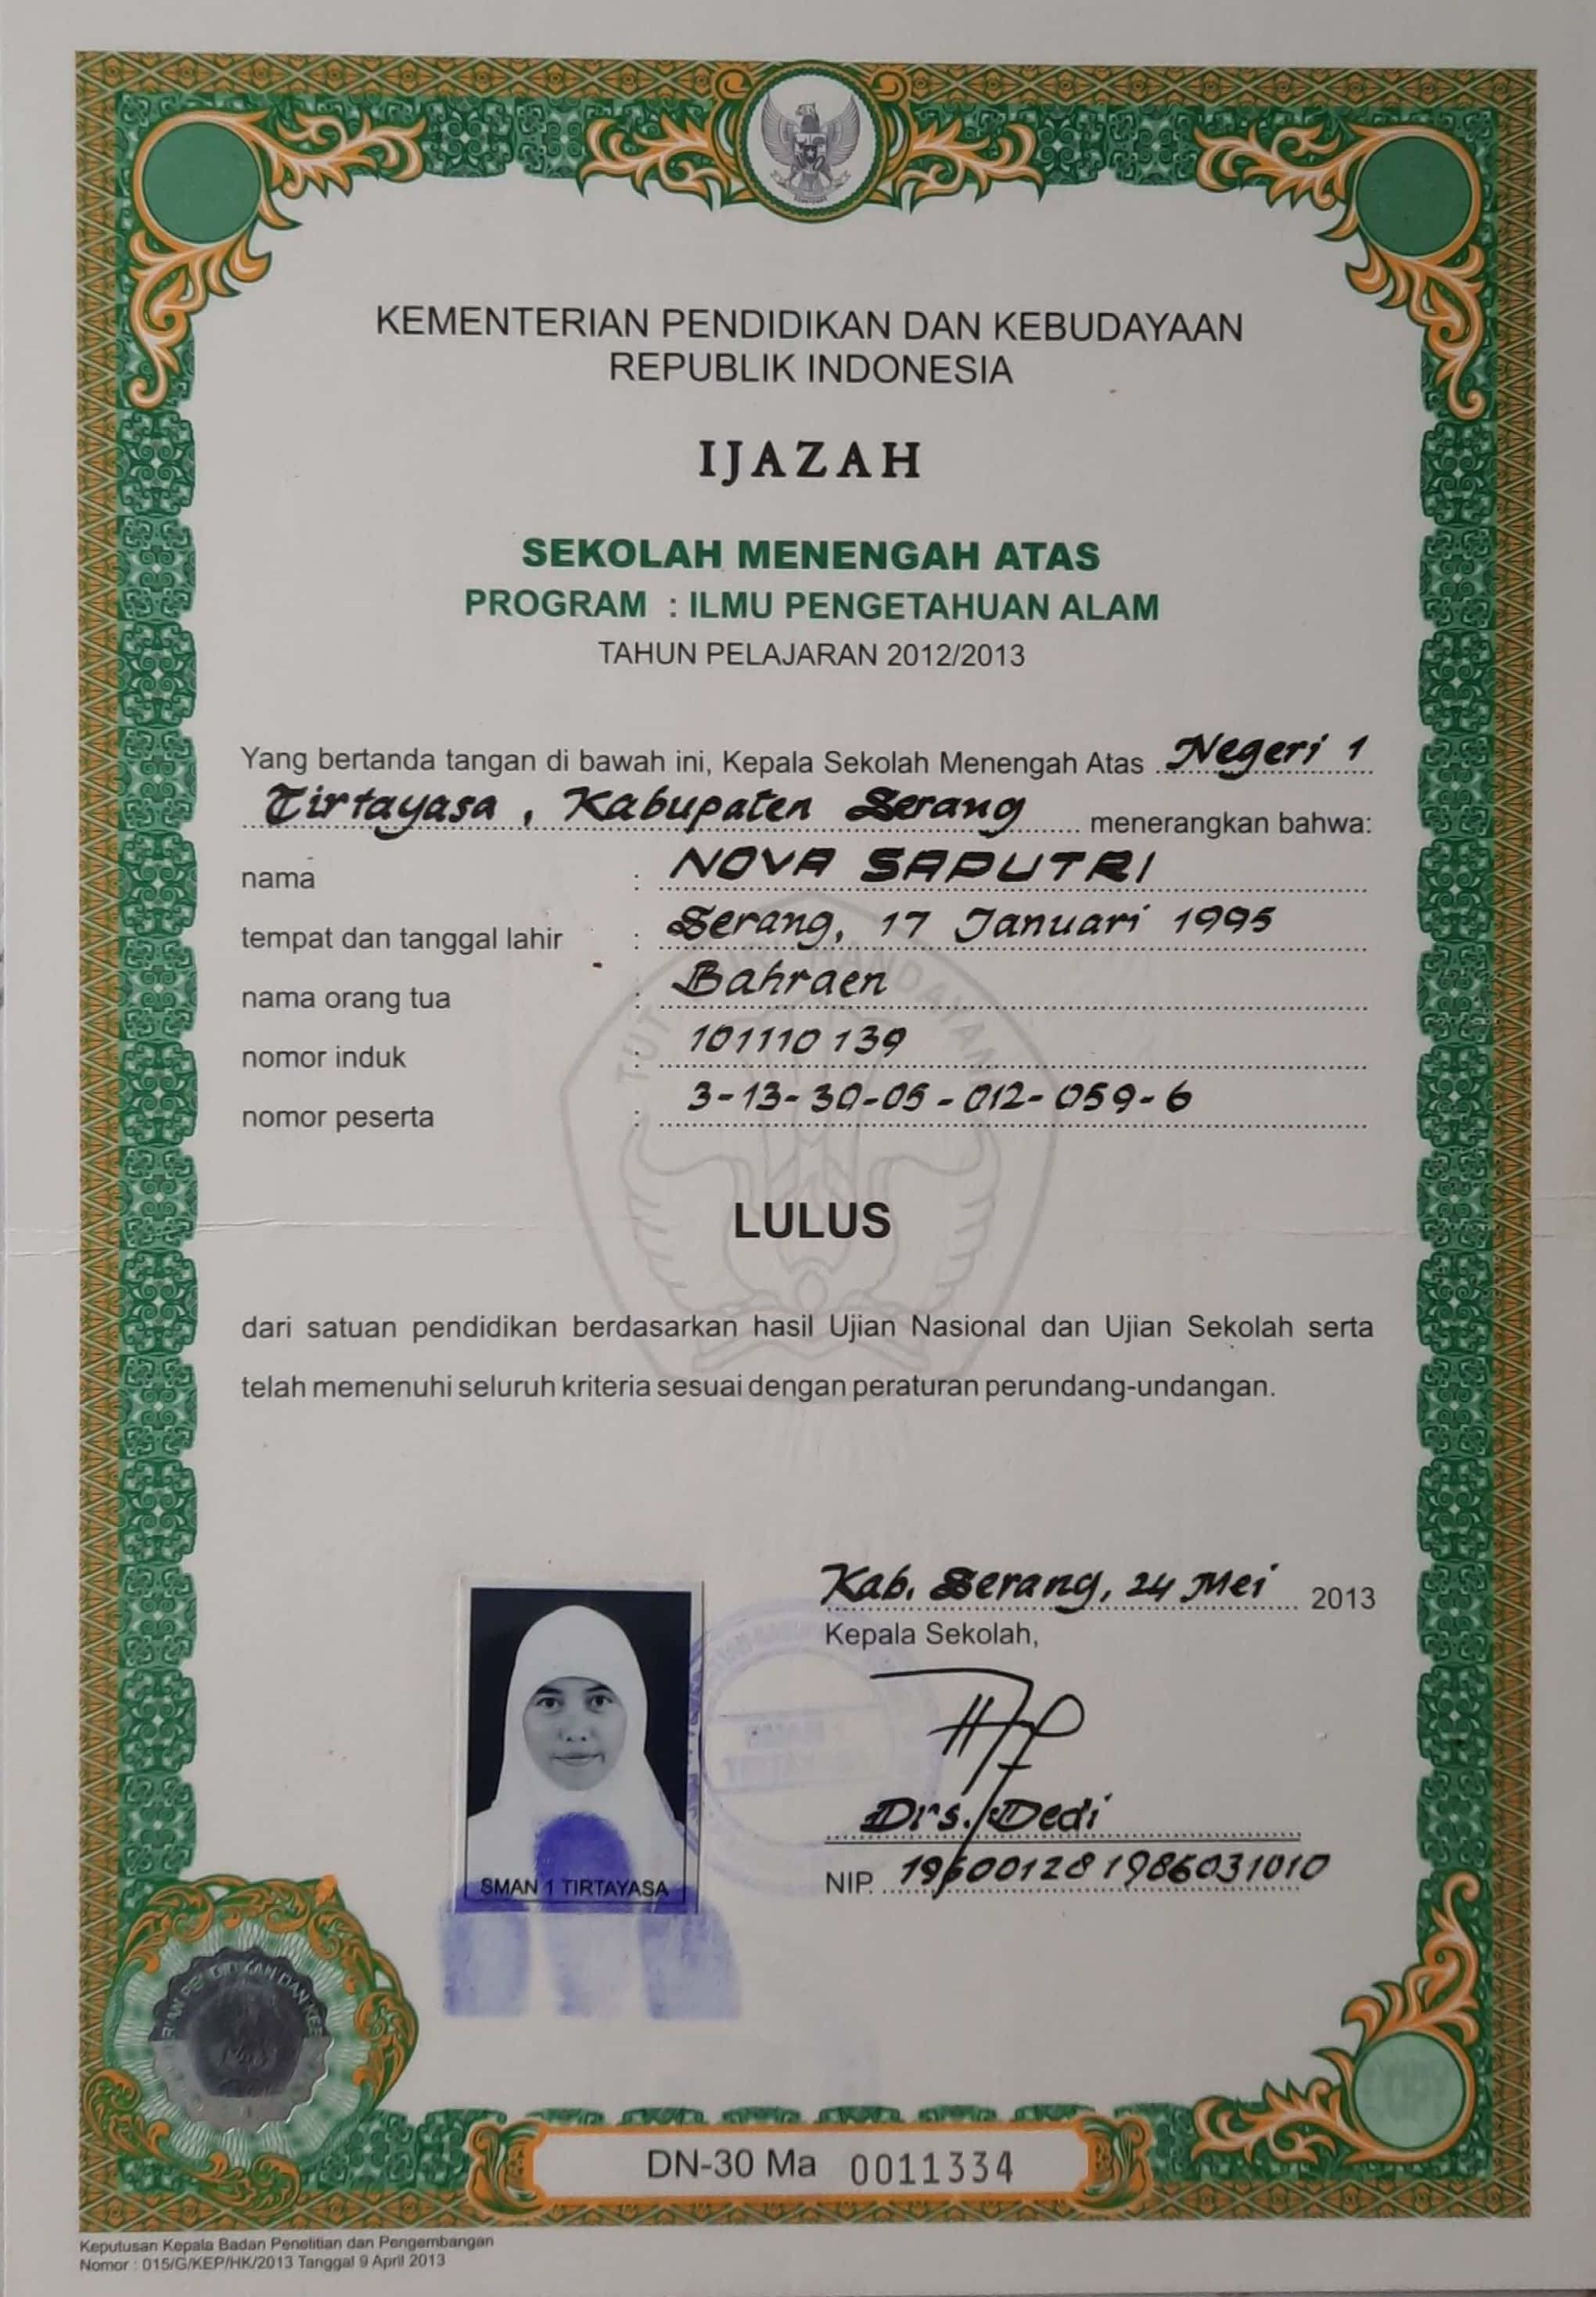 KEMENTERIAN PENDIDIKAN DAN KEBUDAYAAN
REPUBLIK INDONESIA
IJAZAH
SEKOLAH MENENGAH ATAS
PROGRAM : ILMU PENGETAHUAN ALAM
TAHUN PELAJARAN 2012/2013
Yang bertanda tangan di bawah ini, Kepala Sekolah Menengah Atas Negeri 1
Tirtayasa, Kabupaten Serang menerangkan bahwa:
nama : NOVA SAPUTRI
tempat dan tanggal lahir : Serang, 17 Januari 1995
nama orang tua : Bahraen
nomor induk : 101110 139
nomor peserta : 3-13-30-05-012-059-6
LULUS
dari satuan pendidikan berdasarkan hasil Ujian Nasional dan Ujian Sekolah serta
telah memenuhi seluruh kriteria sesuai dengan peraturan perundang-undangan.
Kab. Serang, 24 Mei 2013
Kepala Sekolah,
Drs. Dedi
NIP. 196001281986031010
SMAN 1 TIRTAYASA
DN-30 Ma 0011334
Keputusan Kepala Badan Penelitian dan Pengembangan
Nomor : 015/G/KEP/HK/2013 Tanggal 9 April 2013